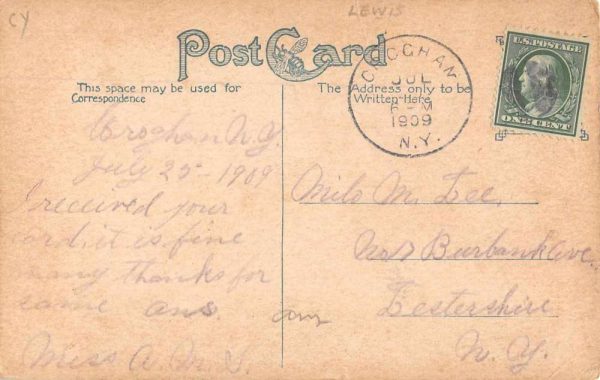 CY
LEWIS
Post Card
This space may be used for
Correspondence
The Address only to be
Written Here
CROGHAN
JUL
6-M
1909
N.Y.
U.S. POSTAGE
ONE CENT
Croghan N.Y.
July 25-1909
I received your
card, it is fine
many thanks for
same ans.
Miss A. M. S.
Milo M. Lee,
No 7 Burbank Ave.
Lestershire
N. Y.